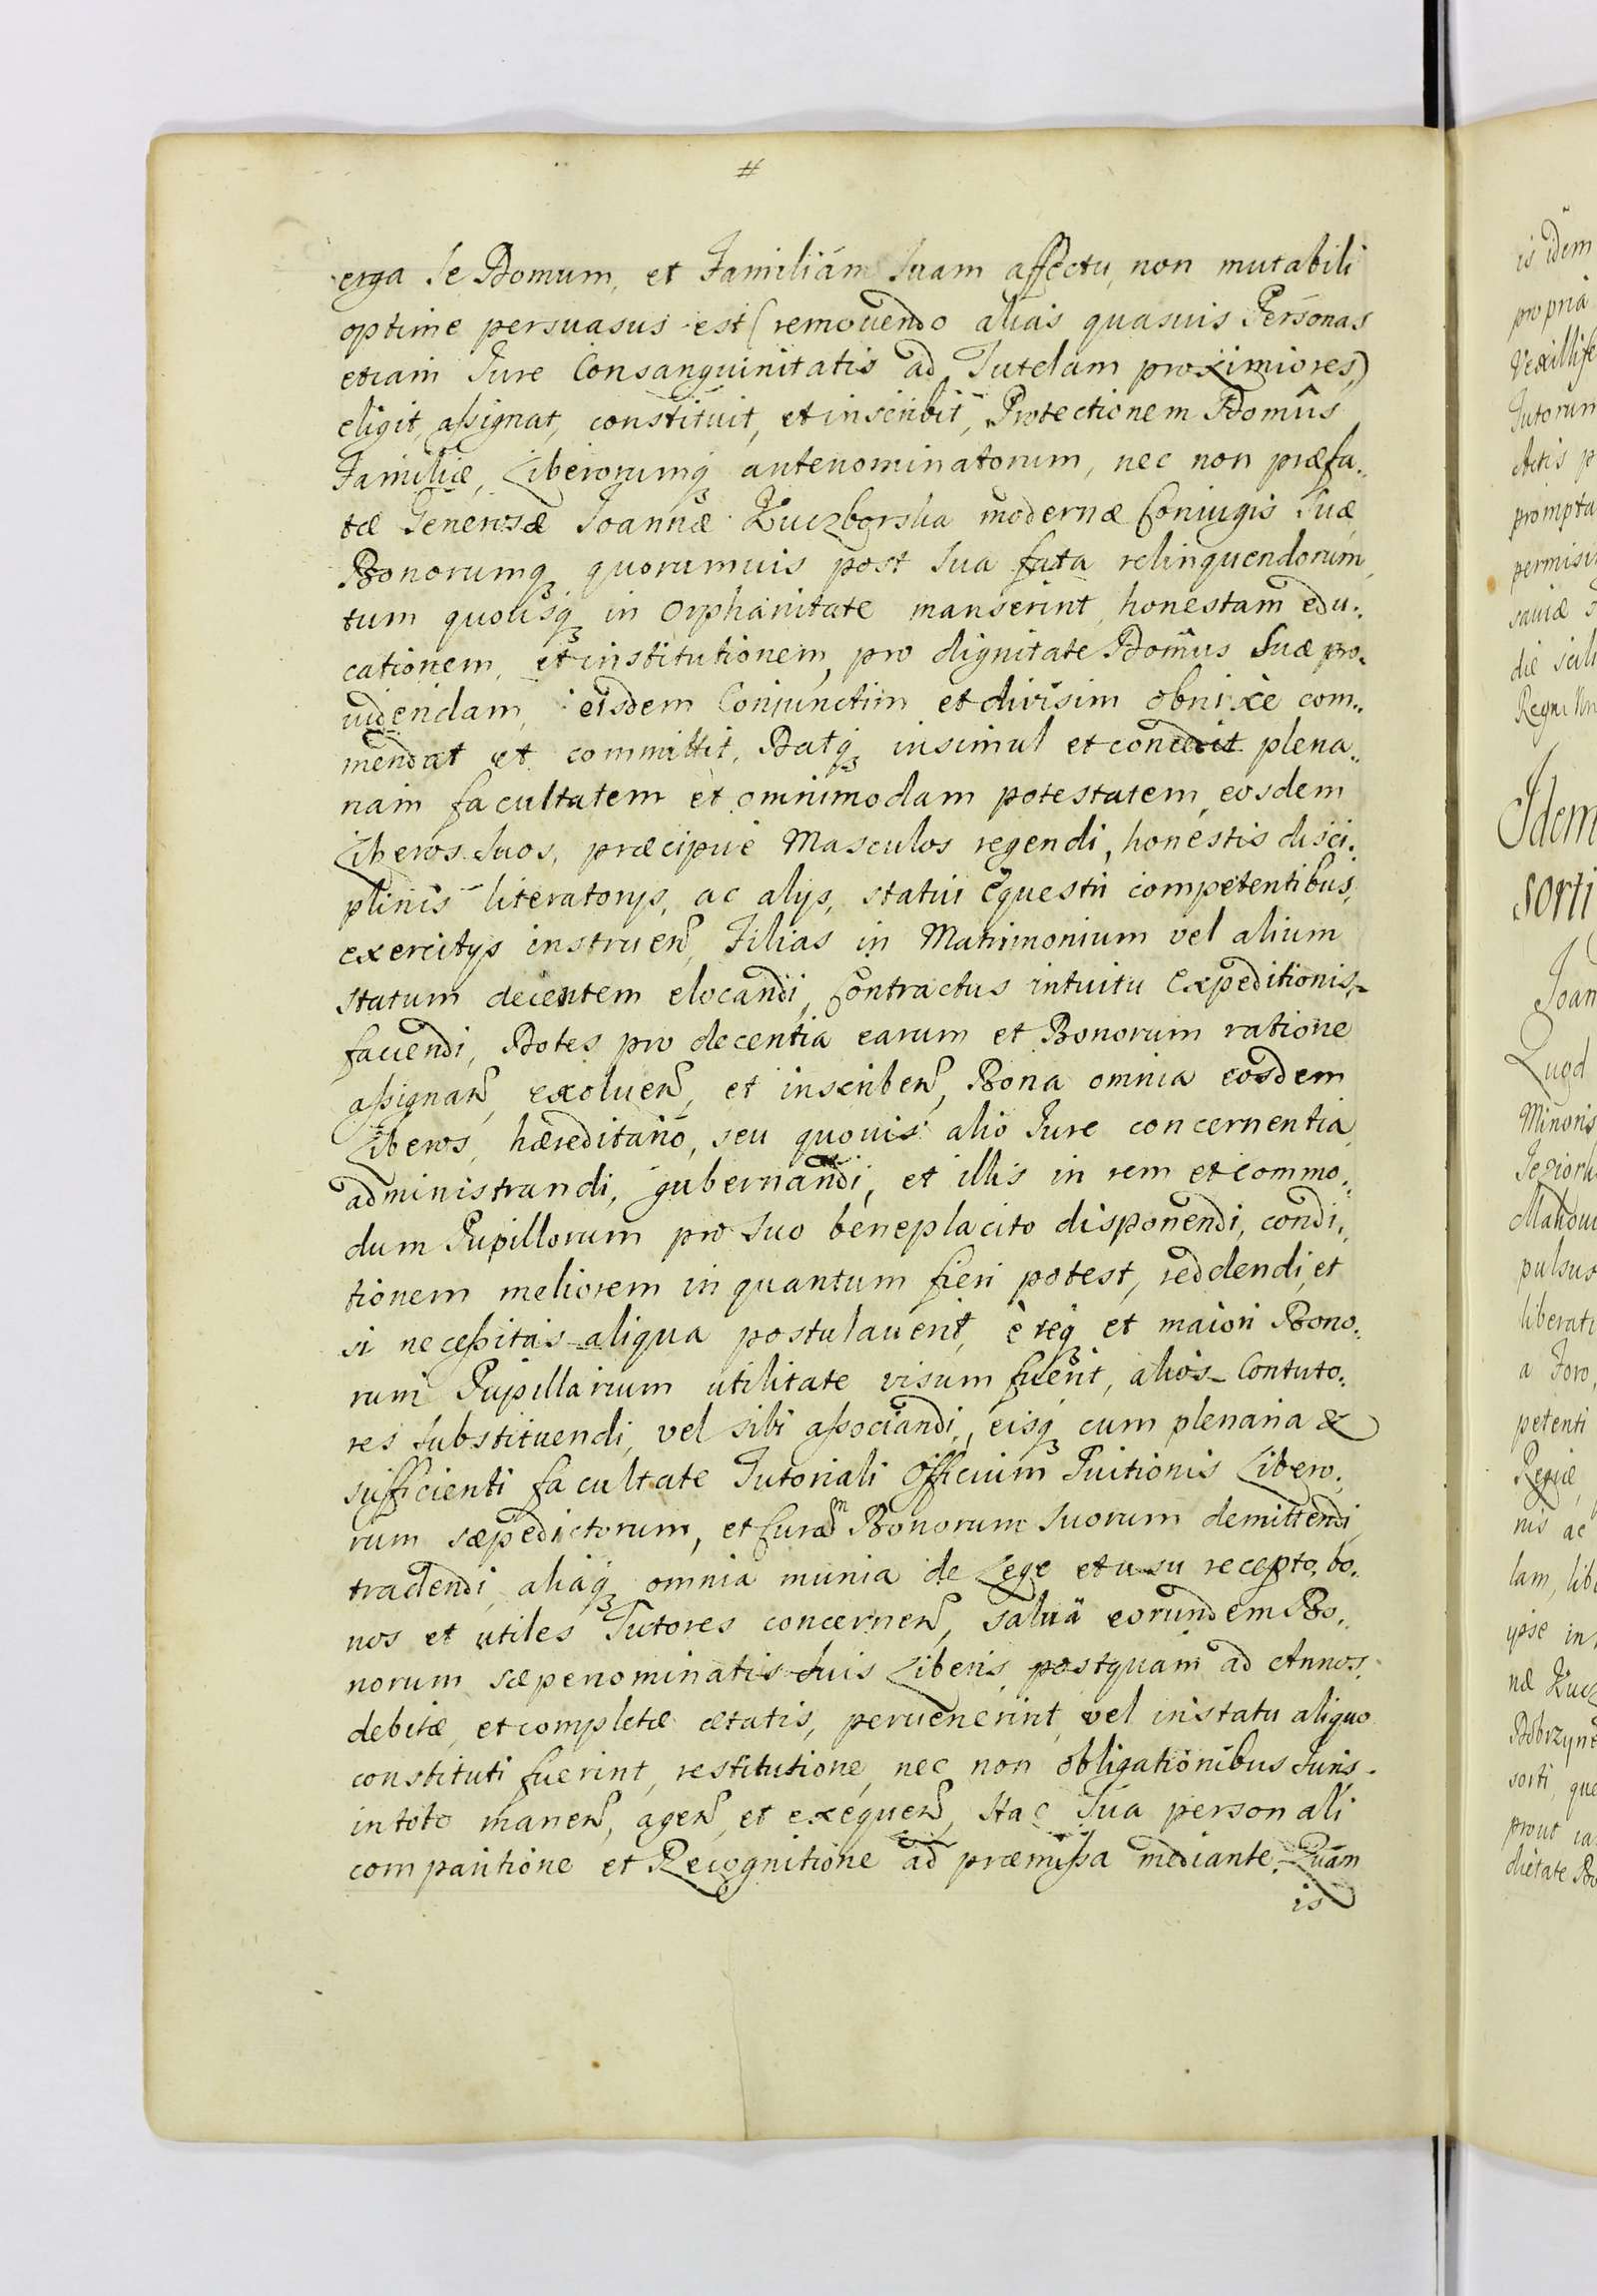 #
erga se Domum, et Familiam suam affectu, non mutabili
optime persuasus est (removendo alias quasuis Personas
etiam Jure Consanguinitatis ad Tutelam proximiores)
eligit, assignat, constituit, et inscribit, Protectionem Domûs
Familiæ, Liberorumq antenominatorum, nec non præfa..
tæ Generosæ Joannæ Kuczborska modernæ Coniugis suæ
Bonorumq quorumuis post sua fata relinquendorum,
tum quousq in Orphanitate manserint, honestam edu..
cationem, et institutionem, pro dignitate Domus suæ pro..
uidendam, eisdem Coniunctim et divisim obnixè com..
mendat et committit. Datq insimul et concedit plena..
nam facultatem et omnimodam potestatem, eosdem
Liberos suos, præcipuè Masculos regendi, honestis disci..
plinis literatorys, ac alys, statui Equestri competentibus,
exercitys instruen, Filias in Matrimonium vel alium
statum decentem elocandi, Contractus intuitu Expeditionis
faciendi, Dotes pro decentia earum et Bonorum ratione
assignan, exoluen, et inscriben, Bona omnia eosdem
Liberos, hæreditario, seu quouis alio Jure concernentia,
administrandi, gubernandi, et illis in rem et commo..
dum Pupillorum pro suo beneplacito disponendi, condi..
tionem meliorem in quantum fieri potest, reddendi, et
si necessitas aliqua postulauerit, è req et maiori Bono..
rum Pupillarium utilitate visum fuerit, alios Contuto..
res substituendi, vel sibi associandi, eisq cum plenaria &
sufficienti facultate Tutoriali Officium Tuitionis Libero..
rum sæpedictorum, et Curam Bonorum suorum demittendi
tradendi, aliaq omnia munia de Lege et usu recepto, bo..
nos et utiles Tutores concernen, salua eorundem Bo..
norum sæpenominatis suis Liberis postquam ad Annos
debitæ, et completæ ætatis, peruenerint, vel in statu aliquo
constituti fuerint, restitutione, nec non obligationibus Juris
in toto manen, agen, et exequen, Hac sua personali
comparitione et Recognitione ad præmissa mediante. Quam
is
is idem
propria
Vexillife
Tutorum
Actis p
prompta
die
Idem
sorti
Joan
Quod
Minoris
pulsus
liberati
a Foro,
petenti
Regiæ,
nis ac
lam, lib
ipse in
næ Kucz
sorti, que
prout